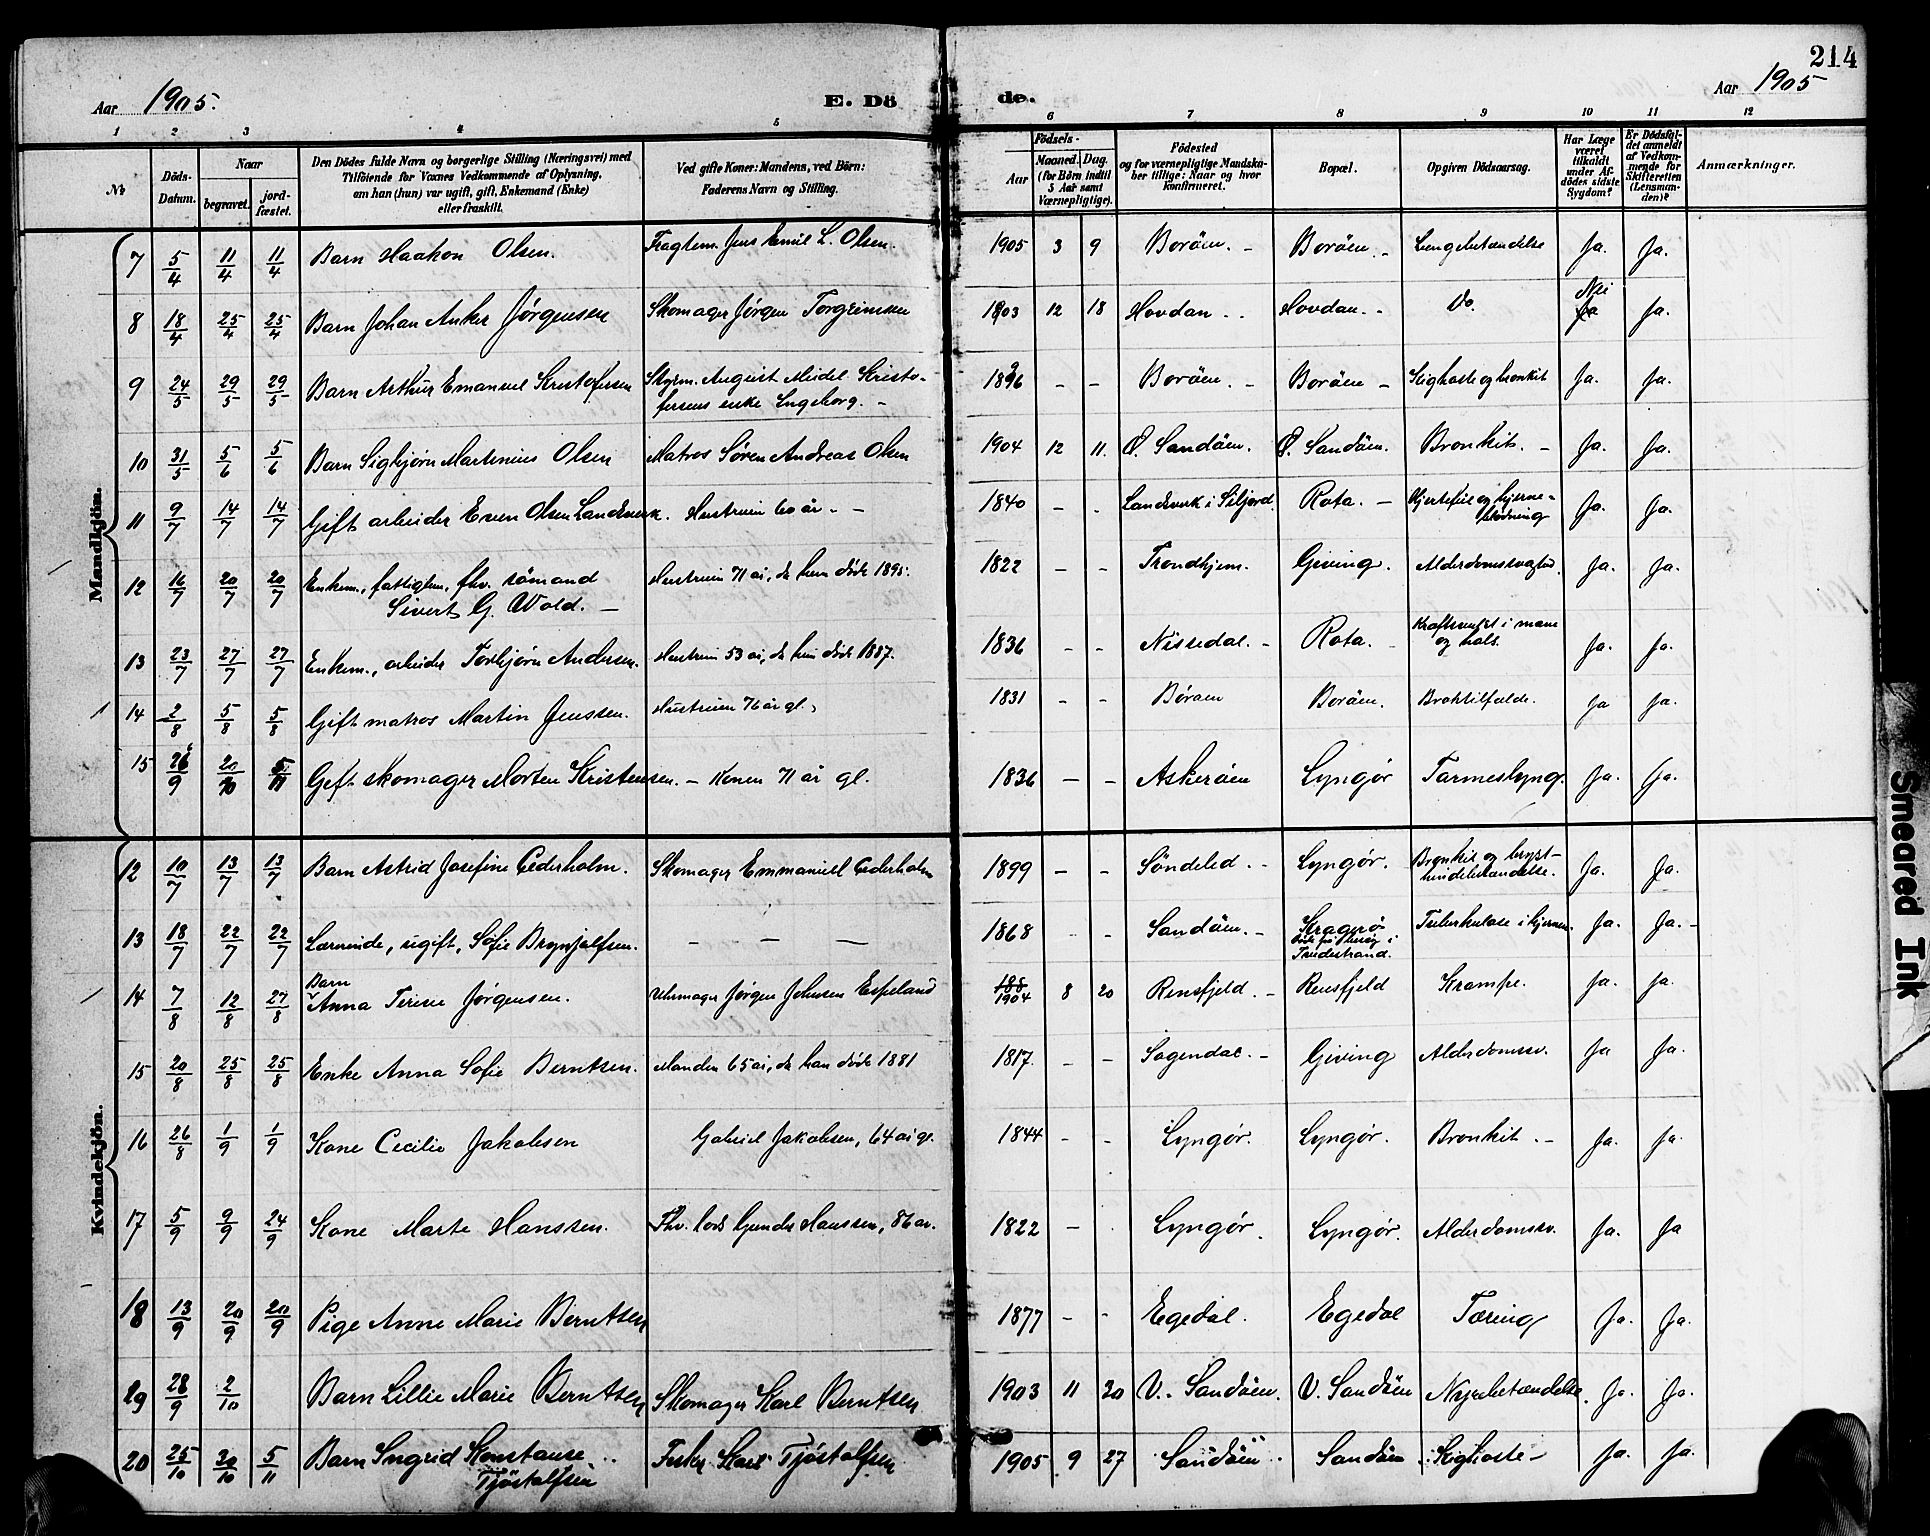 214
Aar 1905.
E. Döde.
Aar 1905
1 2 3 4 5 6 7 8 9 10 11 12
No
Döds-Datum.
Naar
begravet.
jordfæstet.
Den Dödes fulde Navn og borgerlige Stilling (Næringsvei) med
Tilföiende for Voxnes Vedkommende af Oplysning,
om han (hun) var ugift, gift, Enkemand (Enke)
eller fraskilt.
Ved gifte Koner: Mandens, ved Börn:
Faderens Navn og Stilling.
Födsels-
Aar
Maaned. Dag.
(for Börn indtil
5 Aar samt
Værnepligtige).
Födested
og for værnepligtige Mandska-
ber tillige: Naar og hvor
konfirmeret.
Bopæl.
Opgiven Dödsaarsag.
Har Læge
været
tilkaldt
under Af-
dödes sidste
Sygdom?
Er Dödsfal-
det anmeldt
af Vedkom-
mende for
Skifteretten
(Lensman-
den)?
Anmærkninger.
Mandkjön.
7 5/4 11/4 11/4 Barn Haakon Olsen. Fragtem. Jens Emil L. Olsen. 1905 3 9 Boröen. - Boröen. - Lungebetændelse Ja. Ja.
8 18/4 25/4 25/4 Barn Johan Anker Jørgensen Skomager Jørgen Torgrimsen 1903 12 18 Hovdan. . Hovdan. . Do. Nei Ja Ja.
9 24/5 29/5 29/5 Barn Arthur Emanuel Kristofersen Styrm. August Meidel Kristo-
fersens enke Ingeborg. - 1896 - - Boröen. - Boröen - Kighoste og bronkit Ja. Ja.
10 31/5 5/6 5/6 Barn Sigbjørn Martinius Olsen Matros Søren Andreas Olsen 1904 12 11. Ø. Sandöen. Ø. Sandöen. Bronkit. - Ja. Ja.
11 9/7 14/7 14/7 Gift arbeider Even Olsen Landsverk. Hustruen 60 år. - 1840 - - Landsverk i Siljord. Rota. - Hjertefeil og hjerne-
blødning Ja. Ja.
12 16/7 20/7 20/7 Enkem., fattiglem, fhv. sömand
Sivert G. Wold. - Hustruen 71 år, da hun døde 1895. 1822 - - Trondhjem. Gjeving. Alderdomssvaghed. Ja. Ja.
13 23/7 27/7 27/7 Enkem., arbeider Torbjørn Andersen. Hustruen 53 år, da hun døde 1887. 1836 - - Nissedal. - Rota. - Kræftsvulst i mave
og hals. Ja. Ja.
14 2/8 5/8 5/8 Gift matros Martin Jenssen. Hustruen 76 år gl. 1831 - - Böröen Boröen. Broktilfælde. Ja Ja.
15 26/9 20/10 5/11 Gift skomager Morten Kristensen. - Konen 71 år gl. 1836 - - Askeröen Lyngør Tarmeslyng. Ja. Ja.
Kvindekjön.
12 10/7 13/7 13/7 Barn Astrid Josefine Cederholm. Skomager Emmanuel Cederholm 1899 - - Söndeled. - Lyngør. Bronkit og bryst-
hindebetændelse. Ja. Ja.
13 18/7 22/7 22/7 Lærerinde, ugift, Sofie Brynjolfsen. - - - 1868 - - Sandöen. - Kragerø
Døde på besøg i
Tvedestrand. Tuberkulose i hjernen. Ja. Ja. -
14 7/8 12/8 27/8 Barn
Anna Terese Jørgensen. Uhrmager Jørgen Johnsen Espeland 188 1904 8 20 Rensfjeld. - Rensfjeld Krampe. Ja. Ja.
15 20/8 25/8 25/8 Enke Anna Sofie Berntsen. Manden 65 år, da han døde 1881 1817. - - Sogendal. - Gjeving Alderdomssv. Ja Ja.
16 26/8 1/9 1/9 Kone Cecilie Jakobsen Gabriel Jakobsen, 64 år gl. 1844 - - Lyngør. Lyngør. Bronkit. - Ja. Ja.
17 5/9 9/9 24/9 Kone Marte Hanssen. Fhv. lods Gunder Hanssen, 86 år. 1822 - Lyngør. Lyngør. Alderdomssv. Ja. Ja
18 13/9 20/9 20/9 Pige Anne Marie Berntsen 1877 - - Egedal. Egedal Tæring Ja. Ja.
29 28/9 2/10 Barn Lillie Marie Berntsen Skomager Karl Berntsen 1903 11 20 V. Sandöen. V. Sandöen Nyrebetændelse. Ja. Ja.
20 25/10 30/10 5/11 Barn Ingrid Konstanse
Tjøstolfsen Fisker Karl Tjøstolfsen 1905 9 27 Sandöen . . Sandöen Kighoste - Ja. Ja.
Smeared Ink